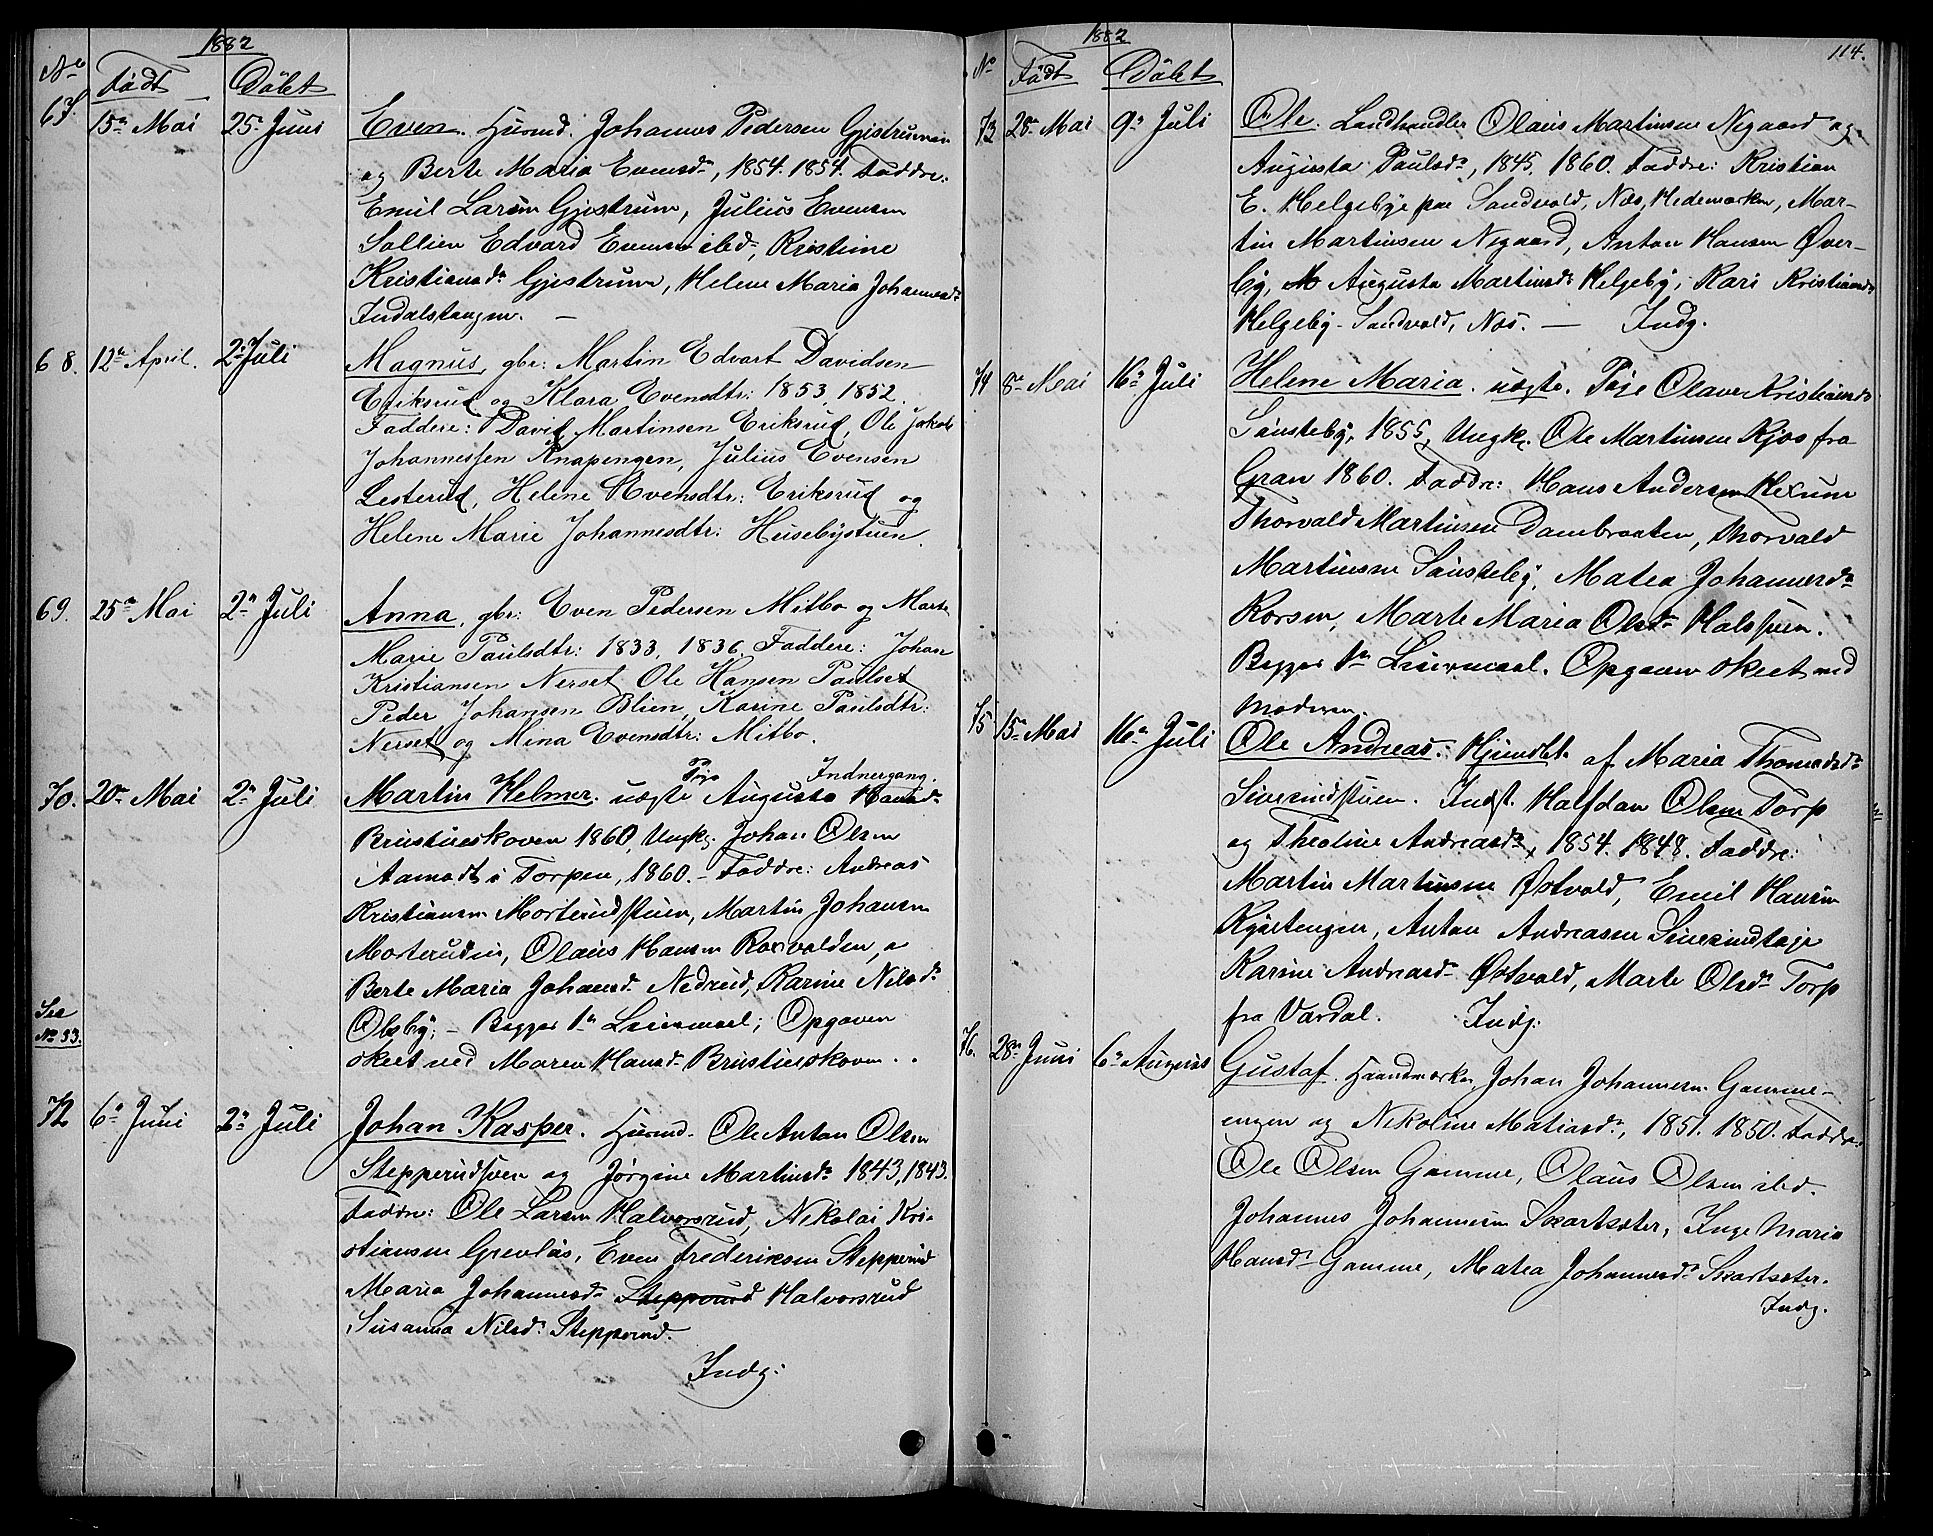 1882
No
Født Døbt
67. 15de Mai 25de Juni Even. Husmd. Johannes Pedersen Gjistrumeie
og Berte Maria Evensd., 1854. 1854. Faddre:
Emil Larsen Gjistrum, Julius Evensen
Sollien Edvard Evensen ibd., Kristine
Kristiansd. Gjistrum, Helene Maria Johannesd.
Indalstangen. —
68. 12te April. 2. Juli Magnus, gbr: Martin Edvart Davidsen
Eriksrud og Klara Evensdtr: 1853, 1852.
Faddere: David Martinsen Eriksrud, Ole Jakob
Johannessen Knapengen, Julius Evensen
Lesterud, Helene Evensdtr: Eriksrud og
Helene Marie Johannesdtr: Husebystuen.
69. 25de Mai 2. Juli Anna, gbr: Even Pedersen Mitbo og Marte
Marie Paulsdtr: 1833, 1836. Faddere: Johan
Kristiansen Nerset Ole Hansen Paulset
Peder Johansen Blien, Karine Paulsdtr:
Nerset og Mina Evensdtr: Mitbo.
Pige Indnergang.
70. 20de Mai 2. Juli Martin Helmer. uægte Augusta Hansd.
Brustueskoven 1860, Ungk. Johan Olsen
Aamodt i Torpen, 1860. – Faddre: Andreas
Kristiansen Morterudstuen, Martin Johansen
Morteruden, Olaus Hansen Roxvolden,
Berte Maria Johansd. Nedrud, Karine Nilsd.
Olsby; – Begges 1ste Leiermaal; Opgaven
skeet ved Maren Hansd. Brustueskoven.
See
No 93.
72 6te Juni 2. Juli Johan Kasper. Husmd. Ole Anton Olsen
Stepperudstuen og Jørgine Martinsd. 1843, 1843.
Faddre: Ole Larsen Halvorsrud, Nikolai Kri-
stiansen Grevlos, Even Frederiksen Stepperud
Maria Johannesd. Stepperud Halvorsrud
Susanna Nilsd. Stepperud.
Indg:
1882
114.
No Født Døbt
73 28de Mai 9de Juli Ole. Landhandler Olaus Martinsen Nygaard og
Augusta Paulsd., 1845. 1860. Faddre: Kristian
E. Helgebye paa Sandvold, Næs, Hedemarken, Mar-
tin Martinsen Nygaard, Anton Hansen Øver-
by, Augusta Martinsd. Helgeby, Kari Kristiansd.
Helgeby-Sandvold, Næs. — Indg.
74 8de Mai 16de Juli Helene Maria. uægte. Pige Olave Kristiansd.
Sønsteby, 1855, Ungk. Ole Martinsen Kjos fra
Gran 1860. Faddre: Hans Andersen Hexum
Thorvald Martinsen Dambraaten, Thorvald
Martinsen Sønsteby, Matea Johannesd.
Korsen, Marte Maria Olsd. Halsstuen.
Begges 1ste Leiermaal. Opgaven skeet ved
Moderen.
75 15de Mai 16de Juli Ole Andreas. Hjemdbt. af Maria Thomasd.
Siverudstuen. Indst. Halfdan Olsen Torp
og Theoline Andreasd., 1854. 1848. Faddre:
Martin Martinsen Østvold, Emil Hansen
Kjøstengen, Anton Andreasen Siverud
Karine Andreasd. Østvold, Marte Olsd. Torp
fra Vardal. Indg:
76. 28de Juni 6te August Gustaf. Haandværker Johan Johannesen Gamme-
engen og Nikoline Matiasd., 1851. 1850. Faddre:
Ole Olsen Gamme, Olaus Olsen ibd.
Johannes Johannesen Skartseter, Inge Maria
Hansd. Gamme, Matea Johannesd. Skartseter.
Indg.